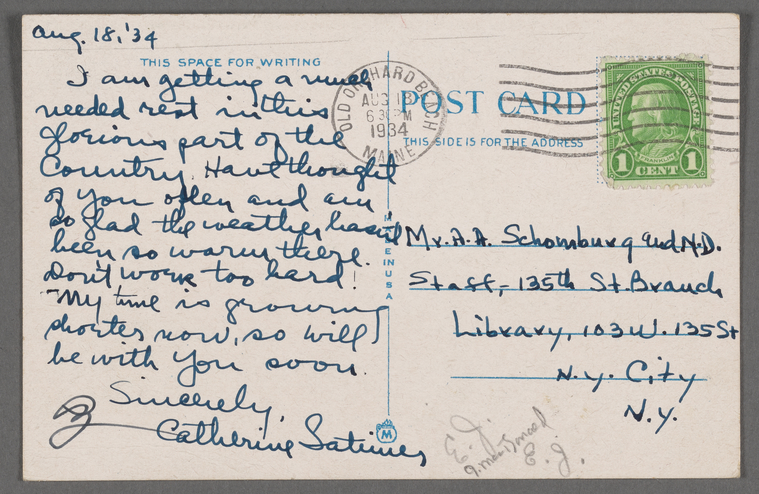 Aug. 18, '34
THIS SPACE FOR WRITING
I am getting a much
needed rest in this
glorious part of the
Country. Have thought
of you often and am
so glad the weather hasn't
been so warm there.
Don't work too hard!
My time is growing
shorter now, so will
be with you soon.
Sincerely,
Catherine Latimer
OLD ORCHARD BEACH
AUG 18
6 30 PM
1934
MAINE
POST CARD
THIS SIDE IS FOR THE ADDRESS
UNITED STATES POSTAGE
FRANKLIN
1 CENT 1
MADE IN USA
M
Mr. A. A. Schomburg and N.D.
Staff,- 135th St. Branch
Library, 103 W. 135 St
N.Y. City
N.Y.
E. J.
E. J.